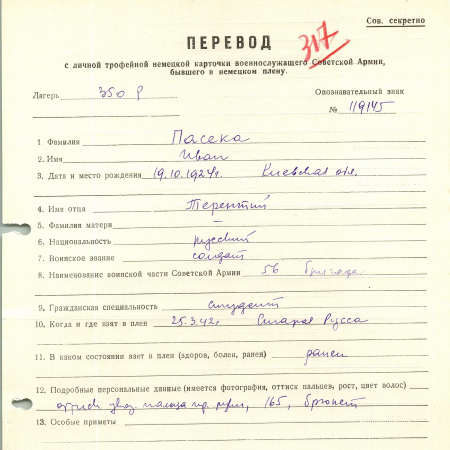 Сов. секретно
317
ПЕРЕВОД
с личной трофейной немецкой карточки военнослужащего Советской Армии,
бывшего в немецком плену.
Лагерь 350 Р
Опознавательный знак
№ 119145
1. Фамилия Пасека
2. Имя Иван
3. Дата и место рождения 19.10.1924г. Киевская обл.
4. Имя отца Терентий
5. Фамилия матери —
6. Национальность русский
7. Воинское звание солдат
8. Наименование воинской части Советской Армии 56 бригада
9. Гражданская специальность студент
10. Когда и где взят в плен 25.3.42г. Старая Русса
11. В каком состоянии взят в плен (здоров, болен, ранен) ранен
12. Подробные персональные данные (имеется фотография, оттиск пальцев, рост, цвет волос)
оттиск указ. пальца пр. руки, 165, брюнет
13. Особые приметы